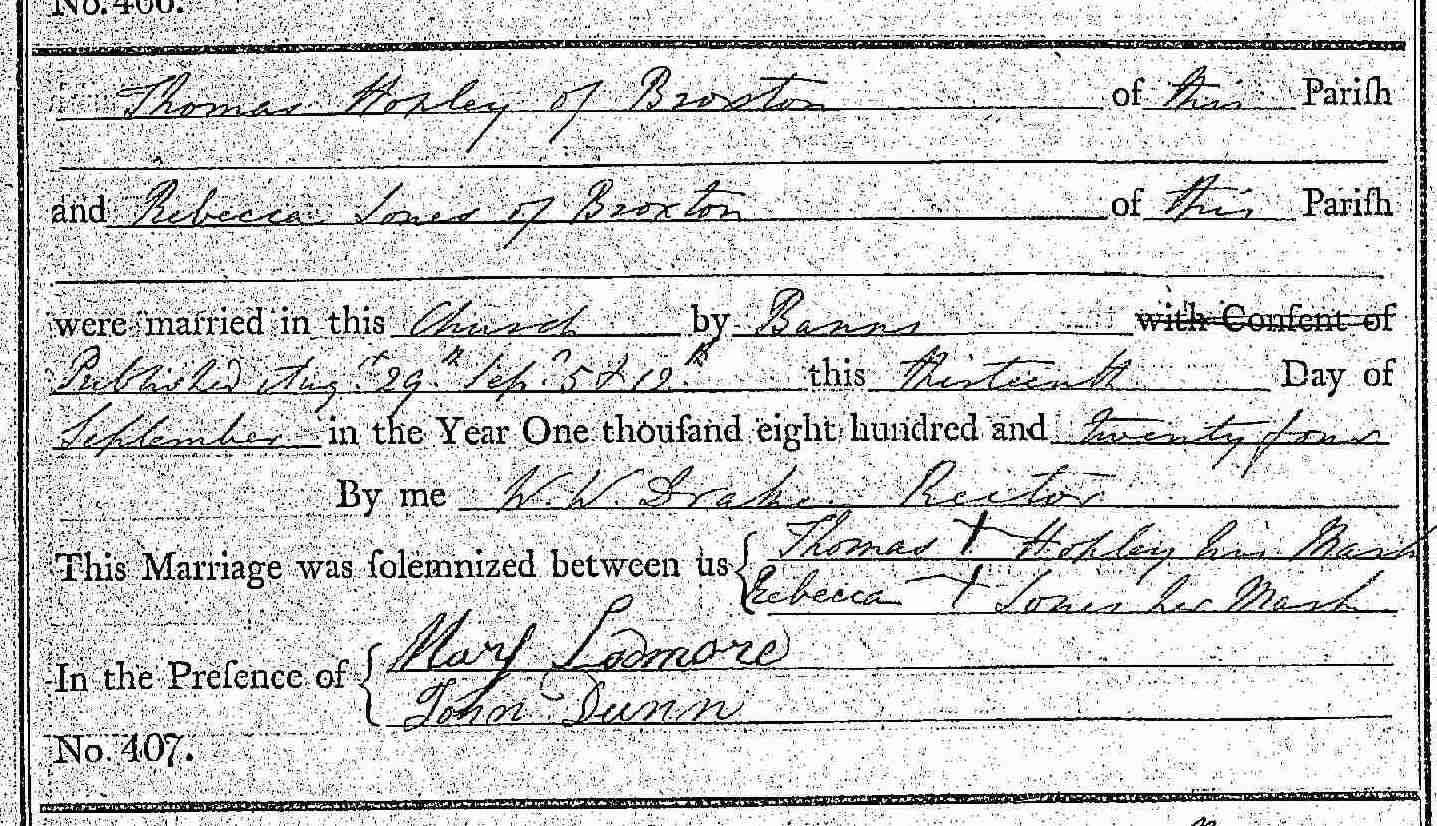 No. 406.
Thomas Hopley of Broxton of this Pariſh
and Rebecca Jones of Broxton of this Pariſh
were married in this Church by Banns with Conſent of
Published Augst 29th Sepr 5 & 12th this thirteenth Day of
September in the Year One thouſand eight hundred and twenty four
By me W. W. Drake Rector
This Marriage was ſolemnized between us { Thomas X Hopley his Mark
Rebecca X Jones her Mark
In the Preſence of { Mary Podmore
John Dunn
No. 407.